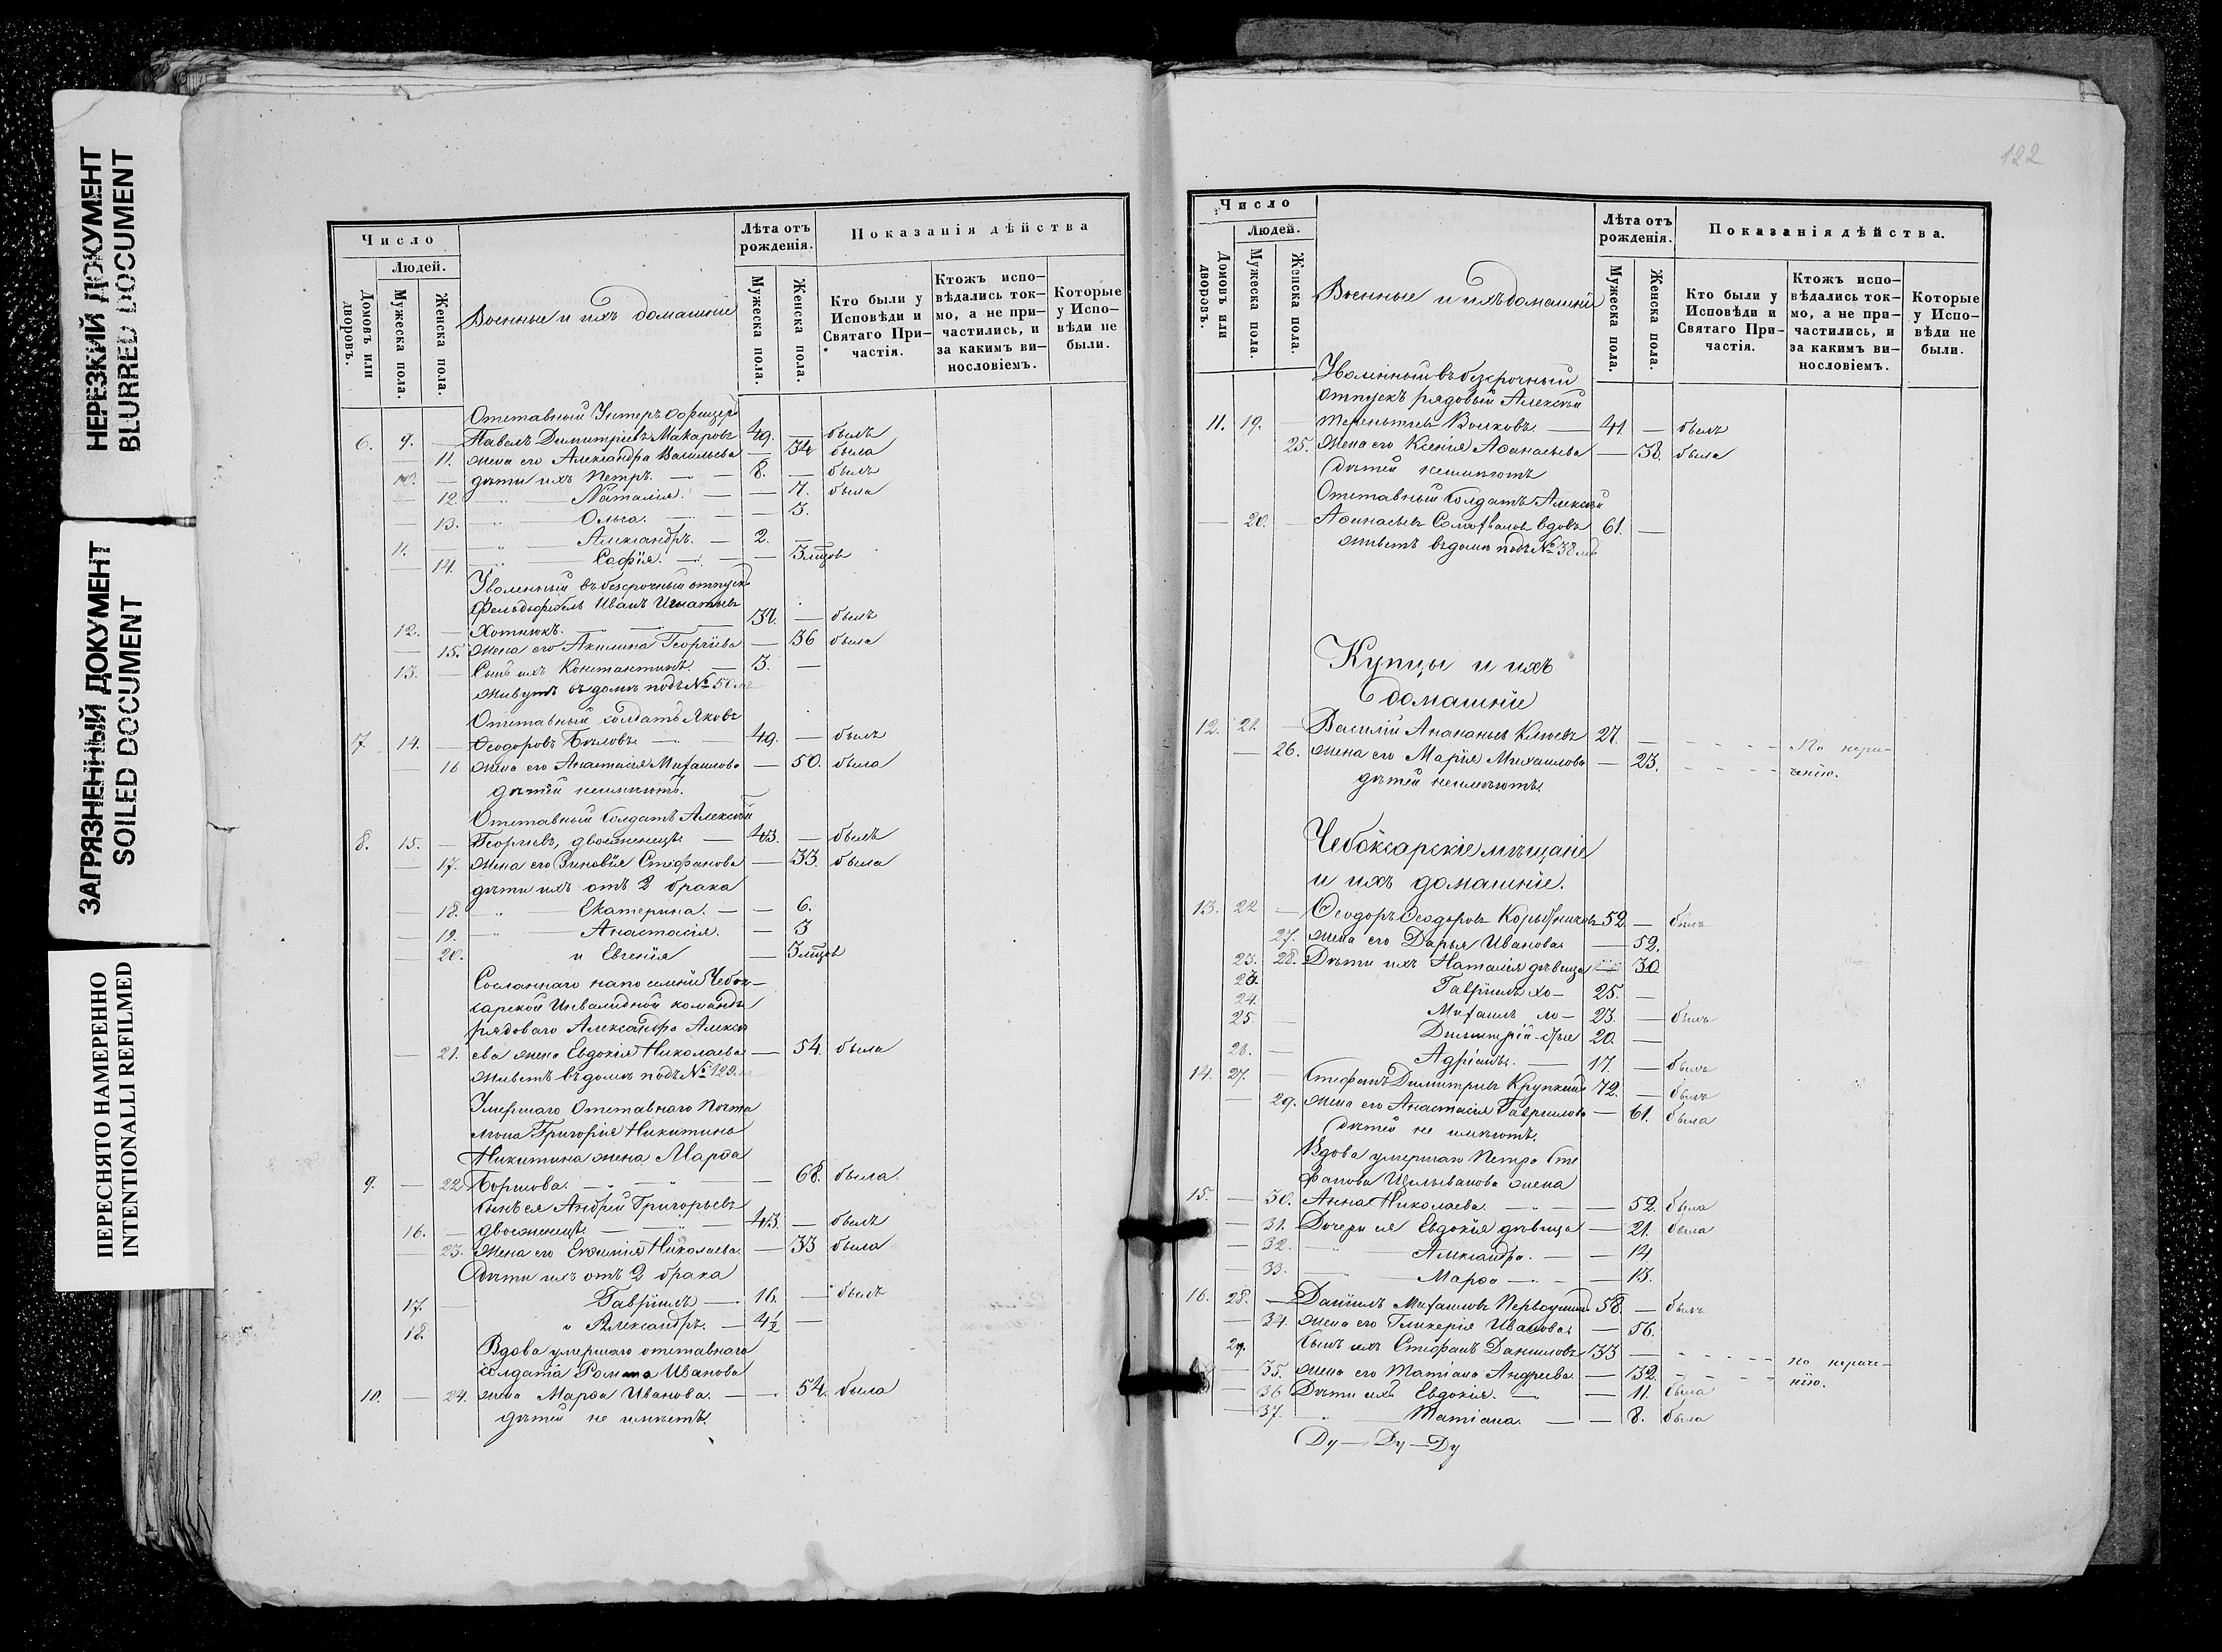 НЕРЕЗКИЙ ДОКУМЕНТ
BLURRED DOCUMENT
ЗАГРЯЗНЕННЫЙ ДОКУМЕНТ
SOILED DOCUMENT
ПЕРЕСНЯТО НАМЕРЕННО
INTENTIONALLI REFILMED
Число
Людей.
Домовъ или дворовъ.
Мужеска пола.
Женска пола.
Военные и ихъ домашніе
Лѣта отъ рожденія.
Мужеска пола.
Женска пола.
Показанія дѣйства
Кто были у Исповѣди и Святаго При-частія.
Ктожъ испо-вѣдались ток-мо, а не при-частились, и за какимъ ви-нословіемъ.
Которые у Испо-вѣди не были.
Отставный Унтеръ Офицеръ
6. 9. — Павелъ Димитріевъ Макаровъ 49. — былъ
— 11. жена его Александра Васильева — 34 была
10. — дѣти ихъ Петръ. — 8. — былъ
— 12. — " — Наталія. — — 7. была
— 13. — " — Ольга. — — 3.
11. — — " — Александръ. — 2. —
— 14. — " — Софія. — — 3 мѣсяцовъ
Уволенный въ безсрочный отпускъ
Фельдфебель Иванъ Игнатьевъ
12. — Хотнюкъ. — 37. — былъ
— 15. жена его Акилина Георгіева — 36 была
13. — Сынъ ихъ Константинъ. — 3. —
живутъ въ домѣ подъ № 50мъ
Отставный солдатъ Яковъ
7 14. — Ѳеодоровъ Бѣловъ — 49. — былъ
— 16 жена его Анастасія Михаилова — 50. была
дѣтей неимѣютъ.
Отставный Солдатъ Алексѣй
8. 15. — Георгіевъ, двоеженецъ — 43. — былъ
— 17. жена его Зиновія Стефанова — 33. была
дѣти ихъ отъ 2 брака
— 18. — " — Екатерина. — — 6.
— 19. — " — Анастасія. — 3
— 20. и Евгенія — 3 мѣсяцовъ
Сосланнаго на поселеніе Чебок-
сарской Инвалидной команды
рядоваго Александра Алексѣ
— 21. ева жена Евдокія Николаева — 54. была
живетъ въ домѣ подъ № 129.
Умершаго Отставнаго Почта
ліона Григорія Никитина
Никитина жена Марѳа
9. — 22 Борисова. — " — — 68. была.
Сынъ ея Андрей Григорьевъ
16. — двоеженецъ. — " — 43. — былъ
— 23. жена его Евѳимія Николаева. — 33 была
Дѣти ихъ отъ 2 брака
17. — Гавріилъ — 16. — былъ
18. и Александръ. — 4½ —
Вдова умершаго отставнаго
солдата Романа Иванова
10. — 24. жена Марѳа Иванова. — — 54. была
дѣтей не имѣетъ.
122
Число
Людей.
Домовъ или дворовъ.
Мужеска пола.
Женска пола.
Военные и ихъ домашніе
Лѣта отъ рожденія.
Мужеска пола.
Женска пола.
Показанія дѣйства.
Кто были у Исповѣди и Святаго При-частія.
Ктожъ испо-вѣдались ток-мо, а не при-частились, и за какимъ ви-нословіемъ.
Которые у Испо-вѣди не были.
Уволенный въ безсрочный
отпускъ рядовый Алексѣй
11. 19. — Терентьевъ Волковъ — 41. — былъ
25. жена его Ксенія Аѳанасьева — 38. была
дѣтей неимѣютъ
Отставный Солдатъ Алексѣй
— 20. — Аѳанасьевъ вдовъ 61. —
живетъ въ домѣ подъ № 38мъ
Купцы и ихъ
домашніе
12. 21. — Василій Ананьевъ Клюевъ 27. — По нера-
— 26. жена его Марія Михаилова — 23. ченію.
дѣтей неимѣютъ.
Чебоксарскіе мѣщане
и ихъ домашніе.
13. 22 — Ѳеодоръ Ѳеодоровъ 52. — былъ
27. жена его Дарья Иванова — 52.
23. 28. Дѣти ихъ Наталія дѣвица — 30
23. Гавріилъ хо— 25. —
24. Михаилъ хо— 23. — былъ
25. — Димитрій 20. —
26. — Адріанъ. — 17. — былъ
14. 27. — Стефанъ Димитріевъ Крупкинъ 72. — былъ
— 29. жена его Анастасія Гаврилова — 61. была
дѣтей не имѣютъ.
Вдова умершаго Петра Сте
фанова жена
15. — 30. Анна Николаева. — — 52. была
— 31. Дочери ея Евдокія дѣвица — 21. была
— 32. — Александра. — — 14
— 33. — Марѳа — — 13.
16. 28. — Даніилъ Михаиловъ 58. — былъ
— 34. жена его Гликерія Иванова — 56.
29. Сынъ ихъ Стефанъ Даниловъ 33 — по нераче-
— 35. жена его Татіана Андреева — 32. нію.
— 36 Дѣти ихъ Евдокія. — — 11. была
— 37. — " — Татіана. — — 8. была
Ду — Ду — Ду